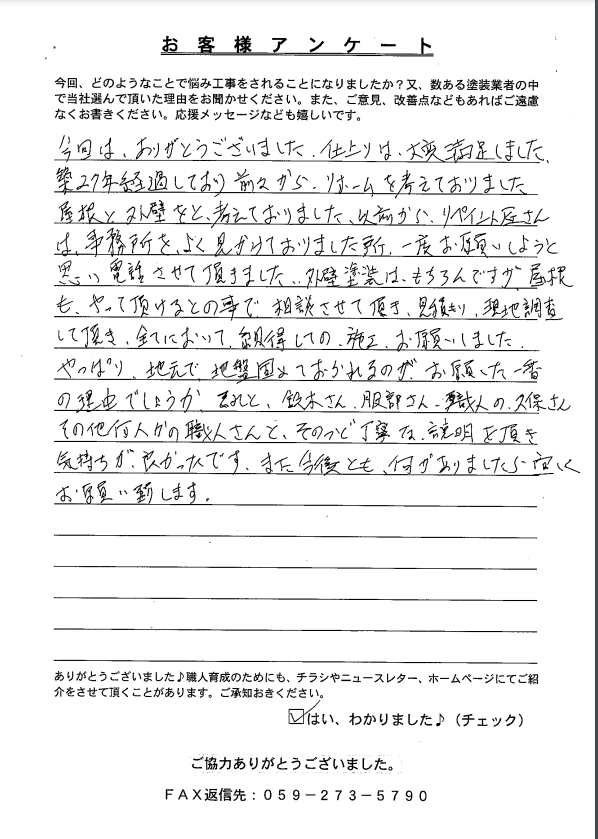 お客様アンケート
今回、どのようなことで悩み工事をされることになりましたか？又、数ある塗装業者の中
で当社選んで頂いた理由をお聞かせください。また、ご意見、改善点などもあればご遠慮
なくお書きください。応援メッセージなども嬉しいです。
今回は、ありがとうございました、仕上りは、大変満足しました、
築27年経過しており前々から、リホームを考えておりました
屋根と外壁をと、考えておりました、以前から、リペイント匠さん
は、事務所を、よく見かけておりました所、一度お願いしようと
思い電話させて頂きました、外壁塗装は、もちろんですが屋根
も、やって頂けるとの事で相談させて頂き、見積り、現地調査
して頂き、全てにおいて、納得しての、施工、お願いしました、
やっぱり、地元で、地盤固めておられるのが、お願いした一番
の理由でしょうか それと、鈴木さん、服部さん、職人の、久保さん
その他何人かの職人さんと、そのつど丁寧な、説明を頂き
気持ちが、良かったです、また今後とも、何かありましたら宜しく
お願い致します。
ありがとうございました♪職人育成のためにも、チラシやニュースレター、ホームページにてご紹
介をさせて頂くことがあります。ご承知おきください。
☑はい、わかりました♪（チェック）
ご協力ありがとうございました。
ＦＡＸ返信先：０５９－２７３－５７９０